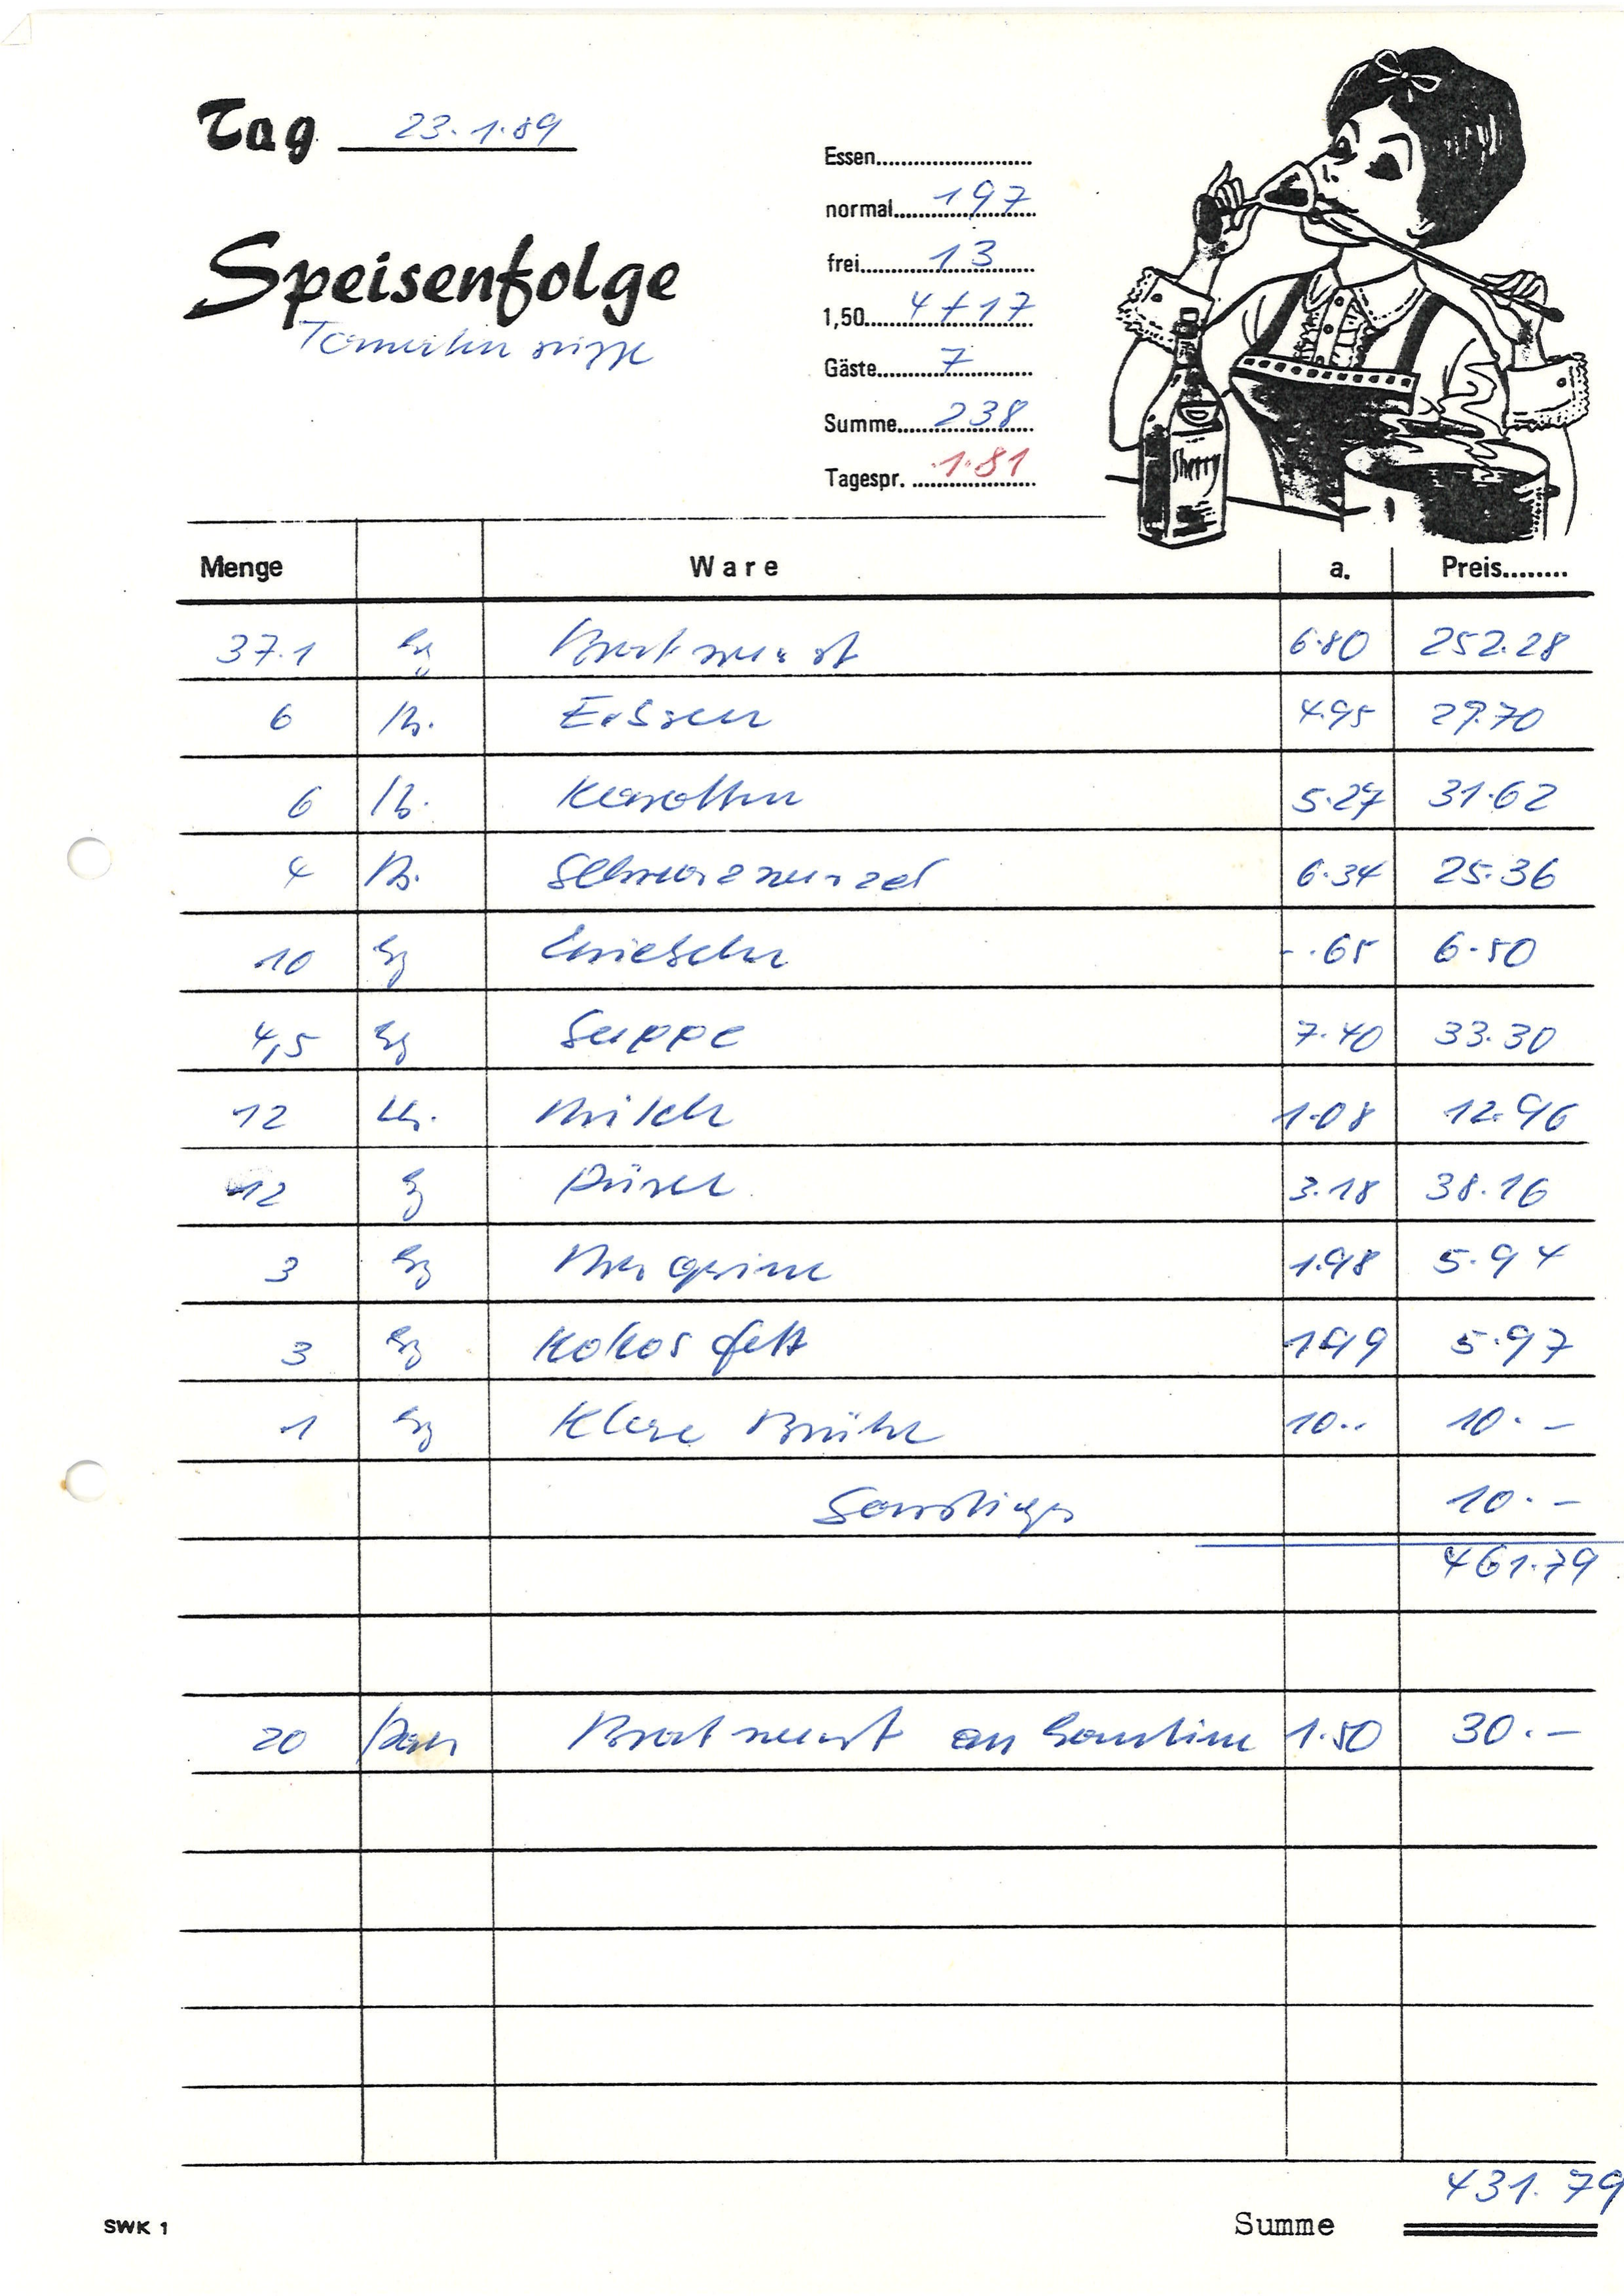 Tag 23.1.89
Speisenfolge
Tomatensuppe
Essen
normal 197
frei 13
1,50 4+17
Gäste 7
Summe 238
Tagespr. 1.81
Sherry
Menge Ware a. Preis
37.1 kg Bratwurst 6.80 252.28
6 Erbsen 4.95 29.70
6 Karotten 5.27 31.62
4 Schwarzwurzel 6.34 25.36
10 kg Zwiebeln -.65 6.50
4,5 kg Suppe 7.40 33.30
12 Milch 1.08 12.96
12 kg Püree 3.18 38.16
3 kg Margarine 1.98 5.94
3 kg Kokosfett 1.99 5.97
1 kg Klare Brühe 10.. 10.-
Sonstiges 10.-
461.79
20 Paar Bratwurst an Kantine 1.50 30.-
431.79
SWK 1 Summe